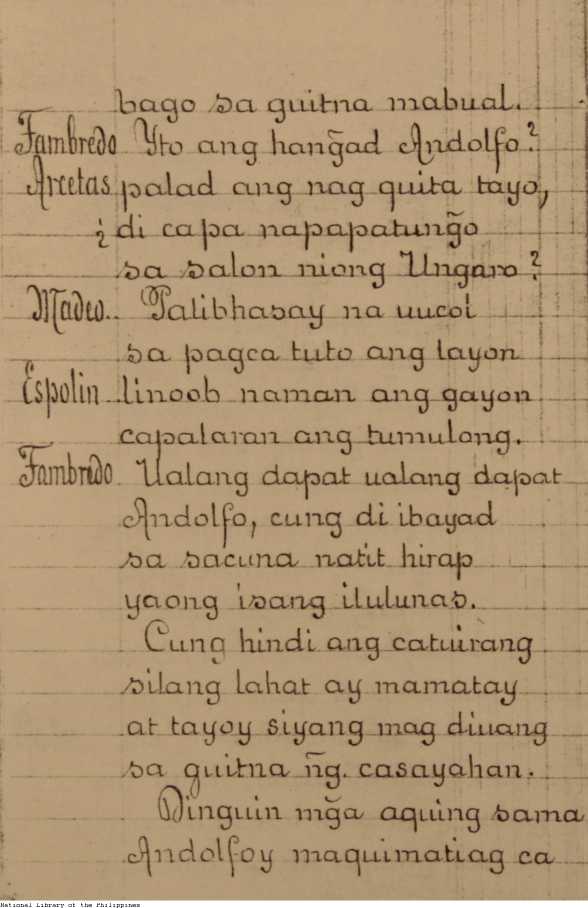 bago sa guitna mabual.
Fambredo Yto ang hang̃ad Andolfo?
Arcetas palad ang nag quita tayo,
¿ di capa napapatung̃o
sa salon niong Ungaro?
Madeo.. Palibhasay na uucol
sa pagca tuto ang layon
Espolin linoob naman ang gayon
capalaran ang tumulong.
Fambredo. Ualang dapat ualang dapat
Andolfo, cung di ibayad
sa sacuna natit hirap
yaong isang ilulunas.
Cung hindi ang catuirang
silang lahat ay mamatay
at tayoy siyang mag diuang
sa guitna ñg. casayahan.
Dinguin mg̃a aquing sama
Andolfoy maquimatiag ca
National Library of the Philippines